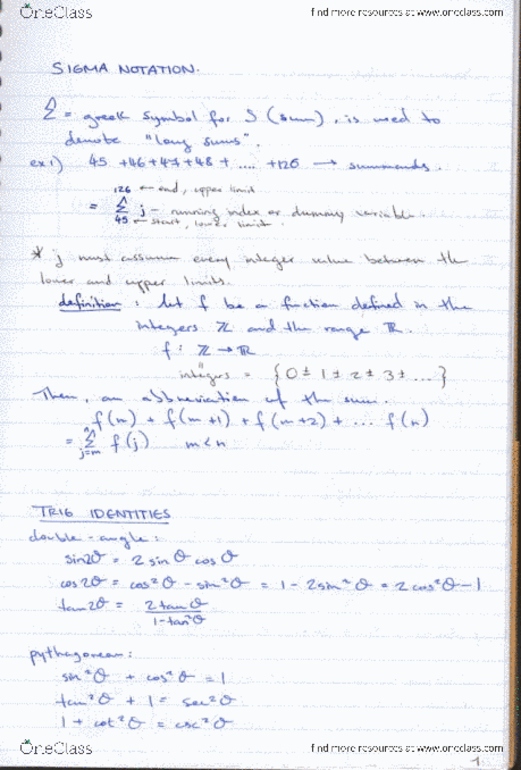 OneClass find more resources at www.oneclass.com
SIGMA NOTATION.
Σ = greek symbol for S (sum), is used to
denote "long sums".
ex1) 45 +46+47+48+ .... +126 → summands.
126 ← end, upper limit
= Σ j - running index or dummy variable.
45 ← start, lower limit.
* j must assume every integer value between the
lower and upper limits.
definition: let f be a function defined in the
integers ℤ and the range ℝ.
f: ℤ → ℝ
integers = {0 ± 1 ± 2 ± 3 ± ...}
Then, an abbreviation of the sum.
f(m) + f(m+1) + f(m+2) + ... f(n)
= Σ f(j) m<n
j=m
TRIG IDENTITIES
double-angle:
sin2θ = 2 sin θ cos θ
cos 2θ = cos²θ - sin²θ = 1 - 2sin²θ = 2cos²θ-1
tan2θ = 2tanθ
1-tan²θ
pythagorean:
sin²θ + cos²θ = 1
tan²θ + 1 = sec²θ
1 + cot²θ = csc²θ
OneClass find more resources at www.oneclass.com
1.